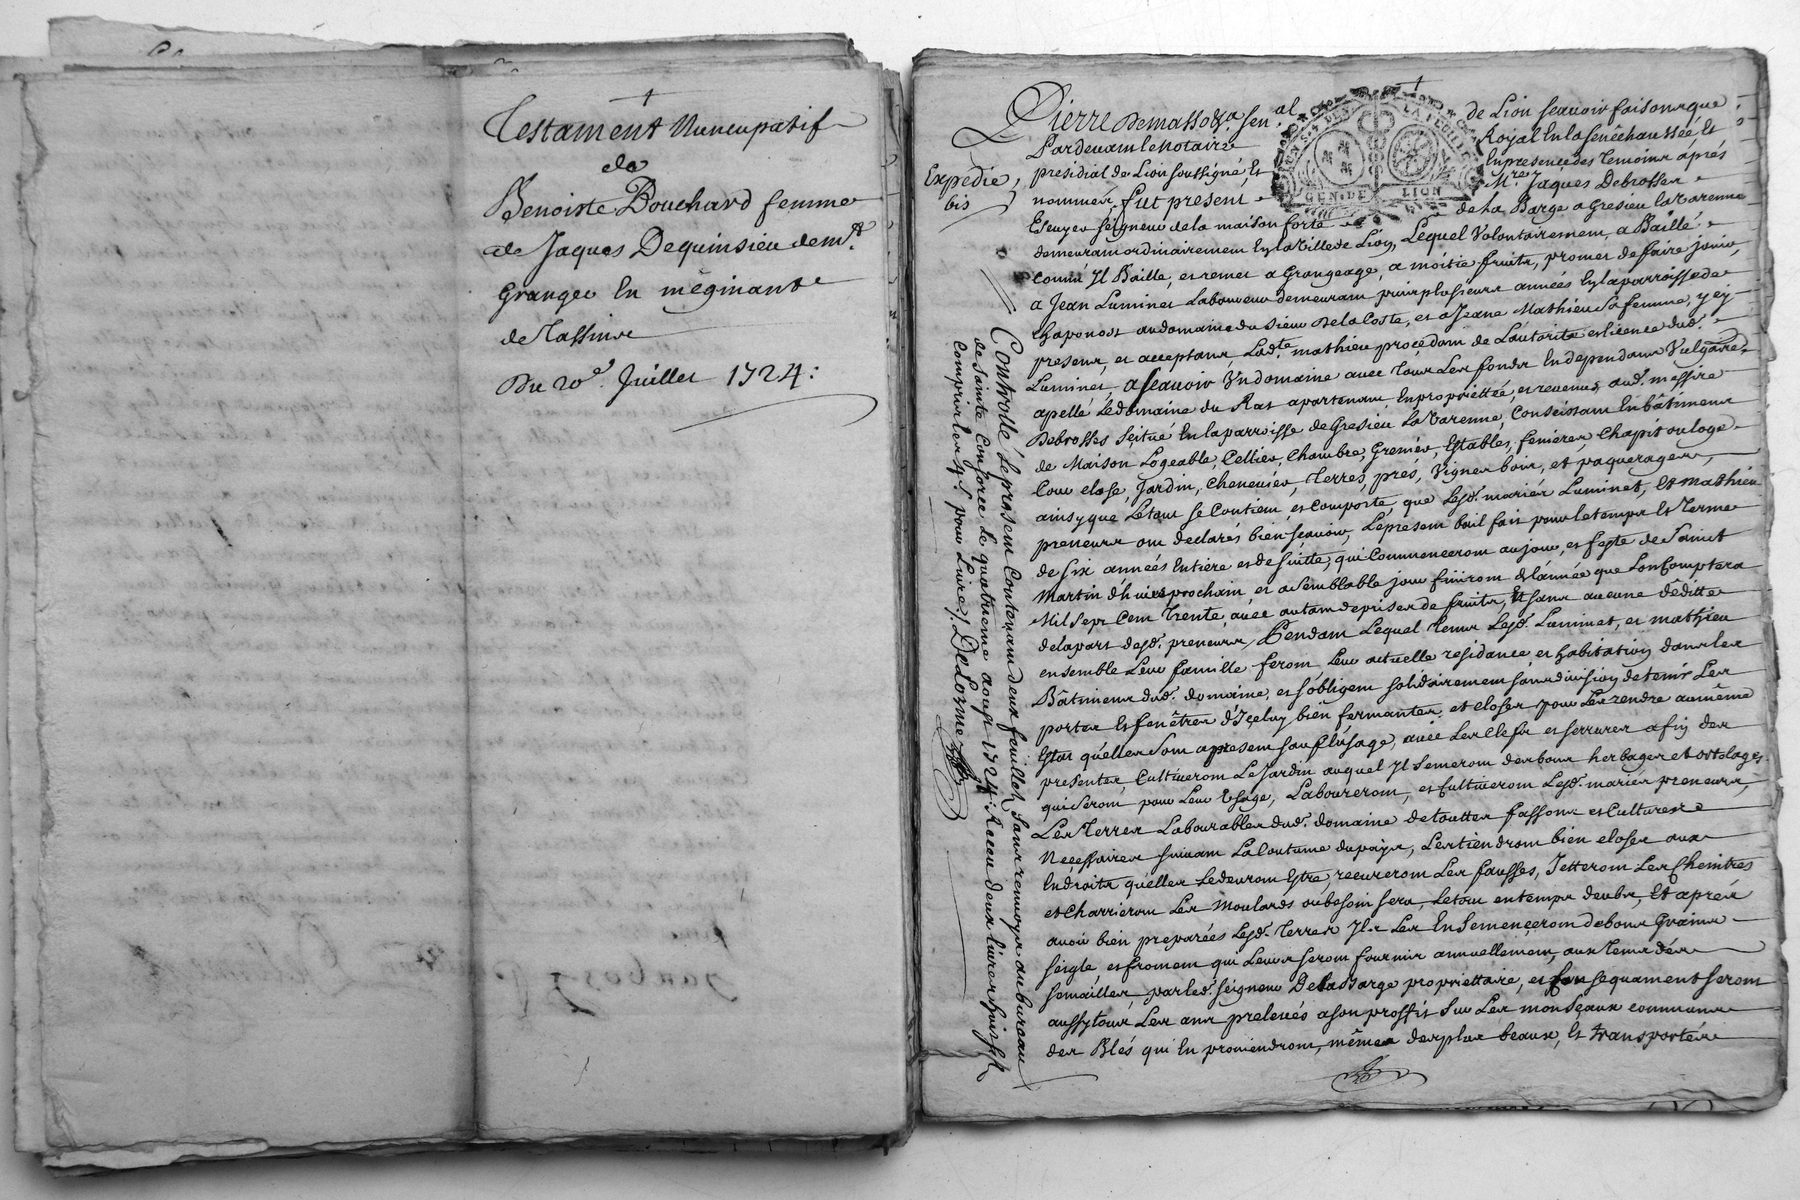 Testament Nuncupatif
de
Benoiste Bouchard femme
de Jaques Dequinsieu demt.
Granger En
de Tassins
Du 20e. Juillet 1724:
Pierre Demasso &a. Senal. de Lion scavoir faisons que
Pardevant le Notaire Royal En la senêchaussée Et
présidial de Lion soussigné, Et En presence des temoins après
Expedié
bis
nommés fut present Mre. Jâques Debrosses
Ecuyer seigneur de la maison forte de la Barge a Gresieu la Varenne
demeurant ordinairement En la Ville de Lion, Lequel Volontairement, a Baillé
comme Il Baille, et remet a Grangeage, a moitié fruits, promet de faire jouir,
a Jean Luminet Laboureur demeurant puis plusieurs années En la parroisse de
Chaponost au domaine du sieur De la Coste, et a Jeane Mathieu sa femme, y cy
presens, et acceptans, Ladte. mathieu procêdant de L'autorité et licence dudt.
Luminet, a scavoir Un domaine avec tous Les fonds En dependans Vulgaire.
apellé Le domaine du Ras apartenant En propriettée, et revenus audt. messire
Debrosses scitué En la parroisse de Gresieu La Varenne, Consistant En bâtimens
de Maison Logeable, Cellier, Chambre, Grenier, Estables, fenieres, Chapit ou loge
Cour close, Jardin, Chenevier, Terres, prés, Vignes bois, et paquerages,
ainsy que Le tout se Contient et Comporte, que Lesdt. mariés Luminet, Et Mathieu
preneurs ont declarés bien scavoir, Le present bail fait pour le temps Et Terme
de six années Entiere et de suitte, qui Commenceront au jour, et feste de Saint
Martin d'hiver prochain, et a semblable jour finiront de l'année que Lon Comptera
Mil Sept Cent Trente, avec autant de prises de fruits, Et sans aucune dêditte
de la part desdt. preneurs, Pendant Lequel tems Lesdt. Luminet, et mathieu
ensemble Leur famille feront Leur actuelle residance et habitation dans les
Bâtimens dudt. domaine, et s'obligent solidairement sans division de tenir Les
portes Et fenêtres d'Içeluy bien fermantes, et closes pour Les rendre au même
Etat qu'elles sont a present sauf L'usage, avec Les Clefs et serrures afin des
presentes, Cultiveront Le Jardin auquel Il semeront des bons herbages et ortolages
qui seront pour Leur Usage, Laboureront, et Cultiveront Lesdt. mariés preneurs,
Les Terres Labourables dudt. domaine de toutes fassons et Cultures
Necessaires suivant La Coutume du pays, Les tiendront bien closes aux
Endroits qu'elles Le devront Estre, recureront Les fausses, Jetteront Les Cheintres
et Charrieront Les Moulards ou besoin sera, Le tout en temps deubs, Et aprés
avoir bien preparées Lesdt. Terres Ils Les Ensemenceront de bons Grains
seigle, et froment qui Leurs seront fournis annuellement, aux tems des
semailles par ledt. seigneur De la Barge propriettaire, et Consequament seront
aussy tous Les ans prelevés a son proffit Sur Les monseaux communs
des Blés qui En proviendront, même des plus beaux, Et transportés
Controllé Le present Contenant deux feuillets sans renvoys au bureau
de Sainte Consorce Le quatrieme aoust 1724: Receu deux livres huit s.
Compris les 4s. pour Livre /. DeLorme
GEN. DE LION